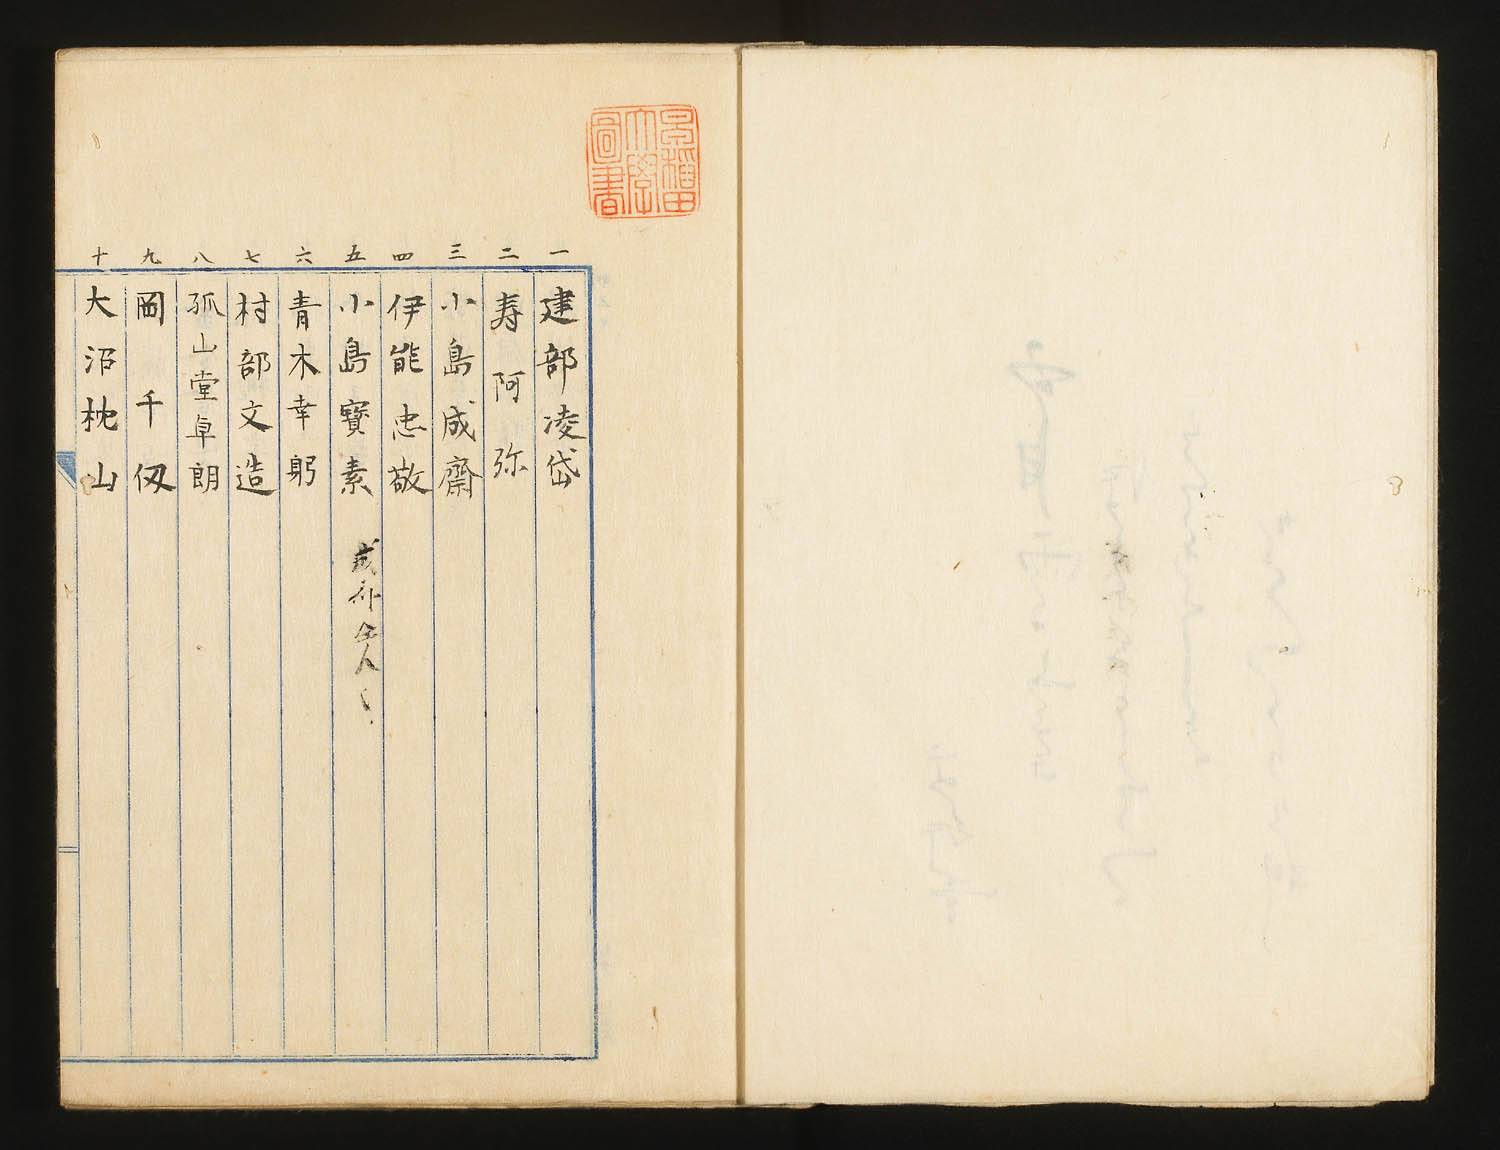 早稲田
大學
圖書
一 建部凌岱
二 寿阿弥
三 小島成齋
四 伊能忠敬
五 小島寶素
六 青木幸躬
七 村部文造
八 孤山堂卓朗
九 岡千仭
十 大沼枕山